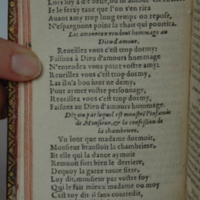 Je le feray tant que l'on s'en rira
Auant amy trop long temps on repose,
N'espargnons point la chair qui pourrira.
Les amoureux rendent hommage au
Dieu d'amour.
Reueillez vous c'est trop dormy,
Faisons à Dieu d'amours hommage
N'entendez vous point vostre amy?
Reueillez vous c'est trop dormy,
Las il n'a bon heur ne demy,
Pour armer vostre personnage,
Reueillez vous c'est trop dormy,
Faisons au Dieu d'amours hommage.
Dizain par lequel est monstré l'
de Monsieur, & la confession de
la chambriere.
Vn iour que madame dormoit,
Monsieur bransloit la chambriere,
Et elle qui la dance aymoit
Remuoit fort bien le derriere,
Dequoy la garse toute fiere,
Luy dit, monsieur par vostre foy
Qui le fait mieux madame ou moy
C'est toy dit il sans contredit,